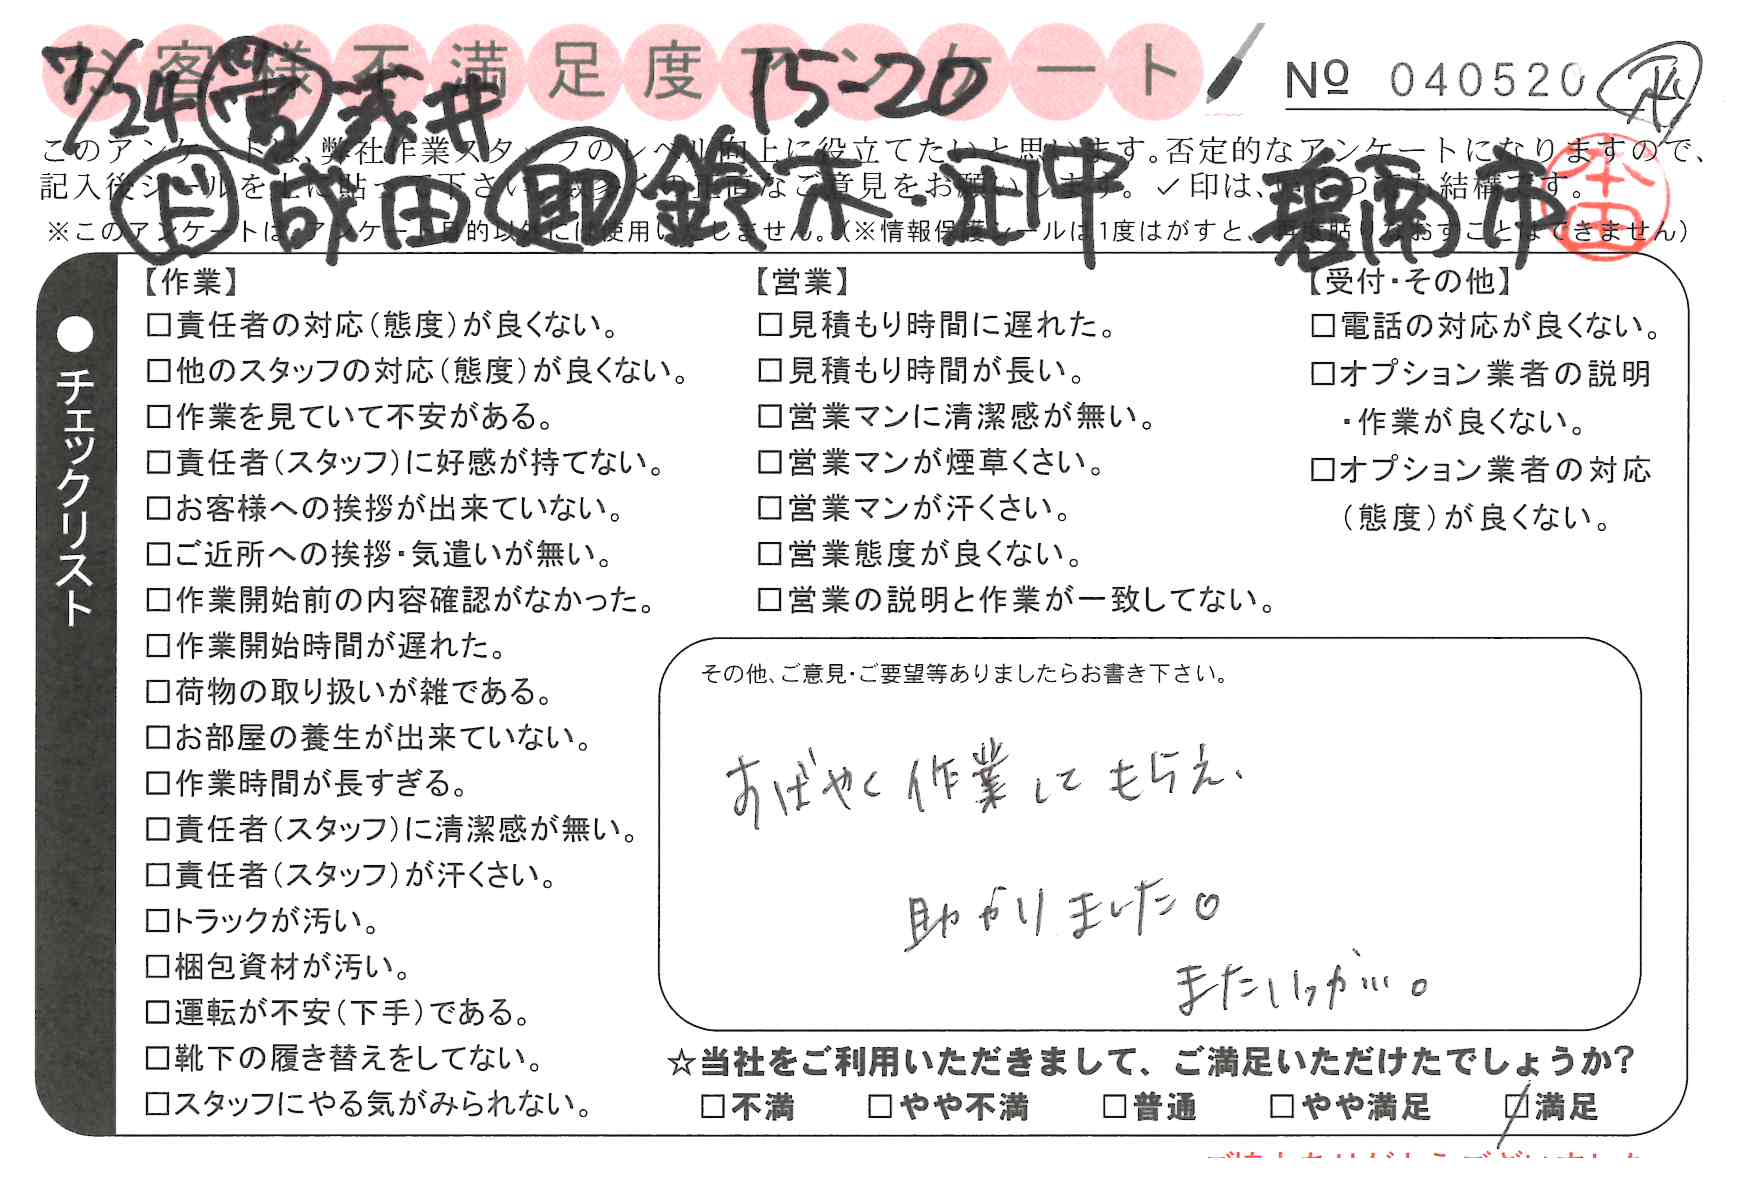 お客様不満足度アンケート
№ 040520
7/24 営 浅井 15-20
このアンケートは、弊社作業スタッフのレベル向上に役立てたいと思います。否定的なアンケートになりますので、
記入後シールを上に貼って下さい。数多くの正直なご意見をお願いします。✓印は、いくつでも結構です。
成田 助 鈴木・田中 碧南市
本田
※このアンケートは、アンケート目的以外には使用いたしません。(※情報保護シールは1度はがすと、再度貼りなおすことはできません)
●チェックリスト
【作業】
□責任者の対応(態度)が良くない。
□他のスタッフの対応(態度)が良くない。
□作業を見ていて不安がある。
□責任者(スタッフ)に好感が持てない。
□お客様への挨拶が出来ていない。
□ご近所への挨拶・気遣いが無い。
□作業開始前の内容確認がなかった。
□作業開始時間が遅れた。
□荷物の取り扱いが雑である。
□お部屋の養生が出来ていない。
□作業時間が長すぎる。
□責任者(スタッフ)に清潔感が無い。
□責任者(スタッフ)が汗くさい。
□トラックが汚い。
□梱包資材が汚い。
□運転が不安(下手)である。
□靴下の履き替えをしてない。
□スタッフにやる気がみられない。
【営業】
□見積もり時間に遅れた。
□見積もり時間が長い。
□営業マンに清潔感が無い。
□営業マンが煙草くさい。
□営業マンが汗くさい。
□営業態度が良くない。
□営業の説明と作業が一致してない。
【受付・その他】
□電話の対応が良くない。
□オプション業者の説明
・作業が良くない。
□オプション業者の対応
(態度)が良くない。
その他、ご意見・ご要望等ありましたらお書き下さい。
すばやく作業してもらえ、
助かりました。
またいつか…。
☆当社をご利用いただきまして、ご満足いただけたでしょうか?
□不満 □やや不満 □普通 □やや満足 ☑満足